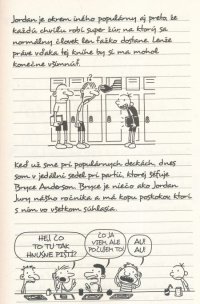 Jordan je okrem iného populárny aj preto, že
každú chvíľu robí super žúr na ktorý sa
normálny človek len ťažko dostane. Lenže
práve vďaka tej knihe by si ma mohol
konečne všimnúť.
?
Keď už sme pri populárnych deckách, dnes
som v jedálni sedel pri partii, ktorej šéfuje
Bryce Anderson. Bryce je niečo ako Jordan
Jury nášho ročníka a má kopu poskokov ktorí
s ním vo všetkom súhlasia.
HEJ, ČO
TO TU TAK
HNUSNE PIŠTÍ?
ČO JA
VIEM, ALE
POČUJEM TO!
AJ!
AJ!